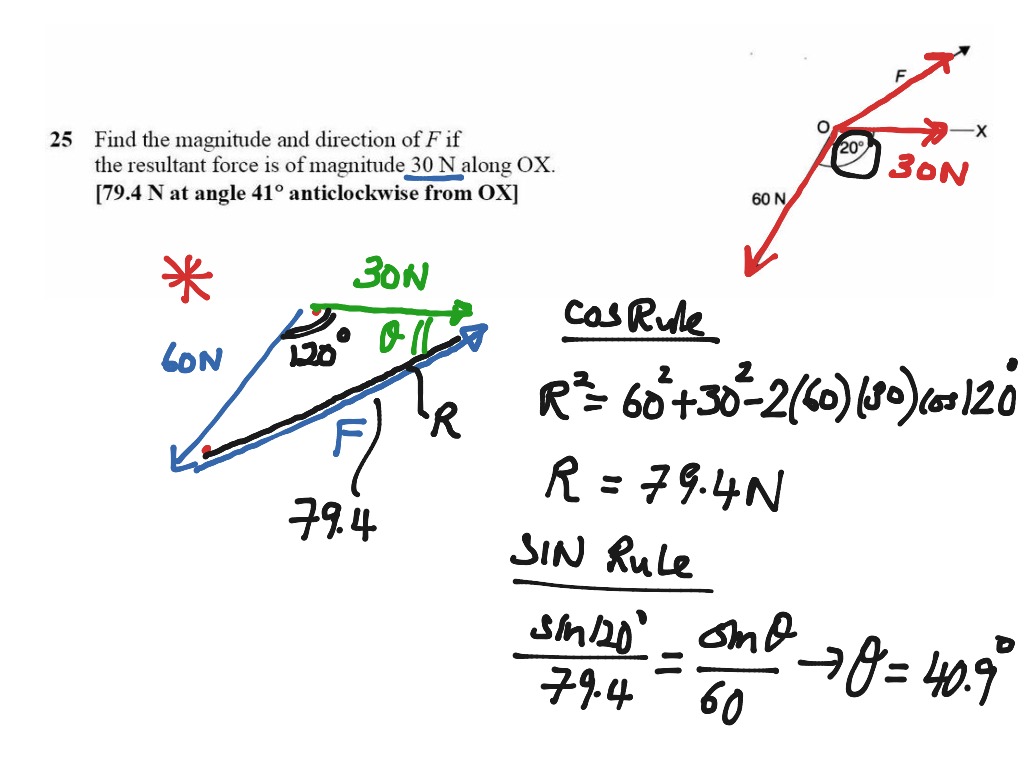 25 Find the magnitude and direction of F if
the resultant force is of magnitude 30 N along OX.
[79.4 N at angle 41° anticlockwise from OX]
F
O
X
20°
30N
60 N
30N
60N
120°
θ
R
F
79.4
Cos Rule
R² = 60² + 30² - 2(60)(30)cos120°
R = 79.4N
SIN RuLe
sin120° / 79.4 = sin θ / 60 → θ = 40.9°